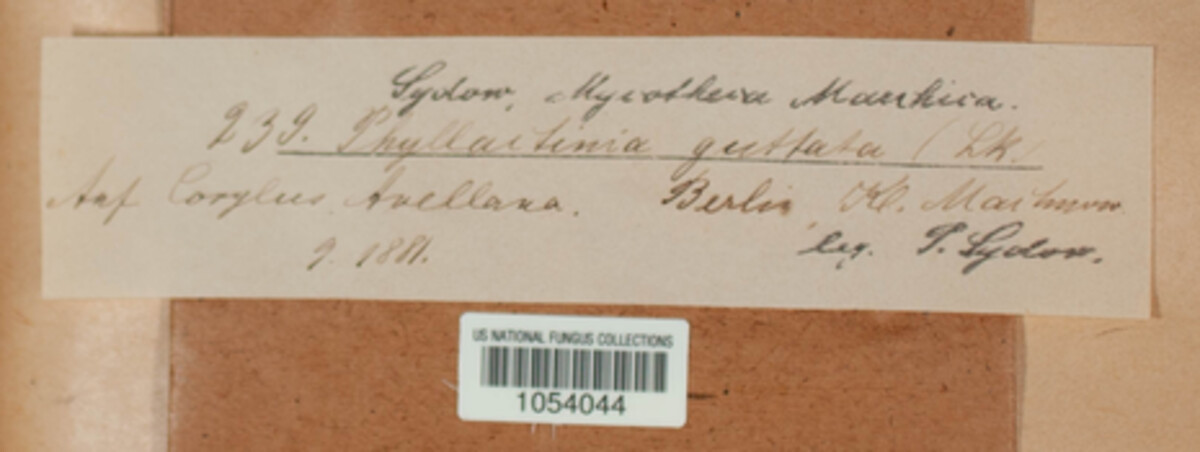 Sydow, Mycotheca Marchica.
239. Phyllactinia guttata (Lk.
Auf Corylus Avellana. Berlin, Kl. Machnow
9. 1881. leg. P. Sydow.
US NATIONAL FUNGUS COLLECTIONS
1054044